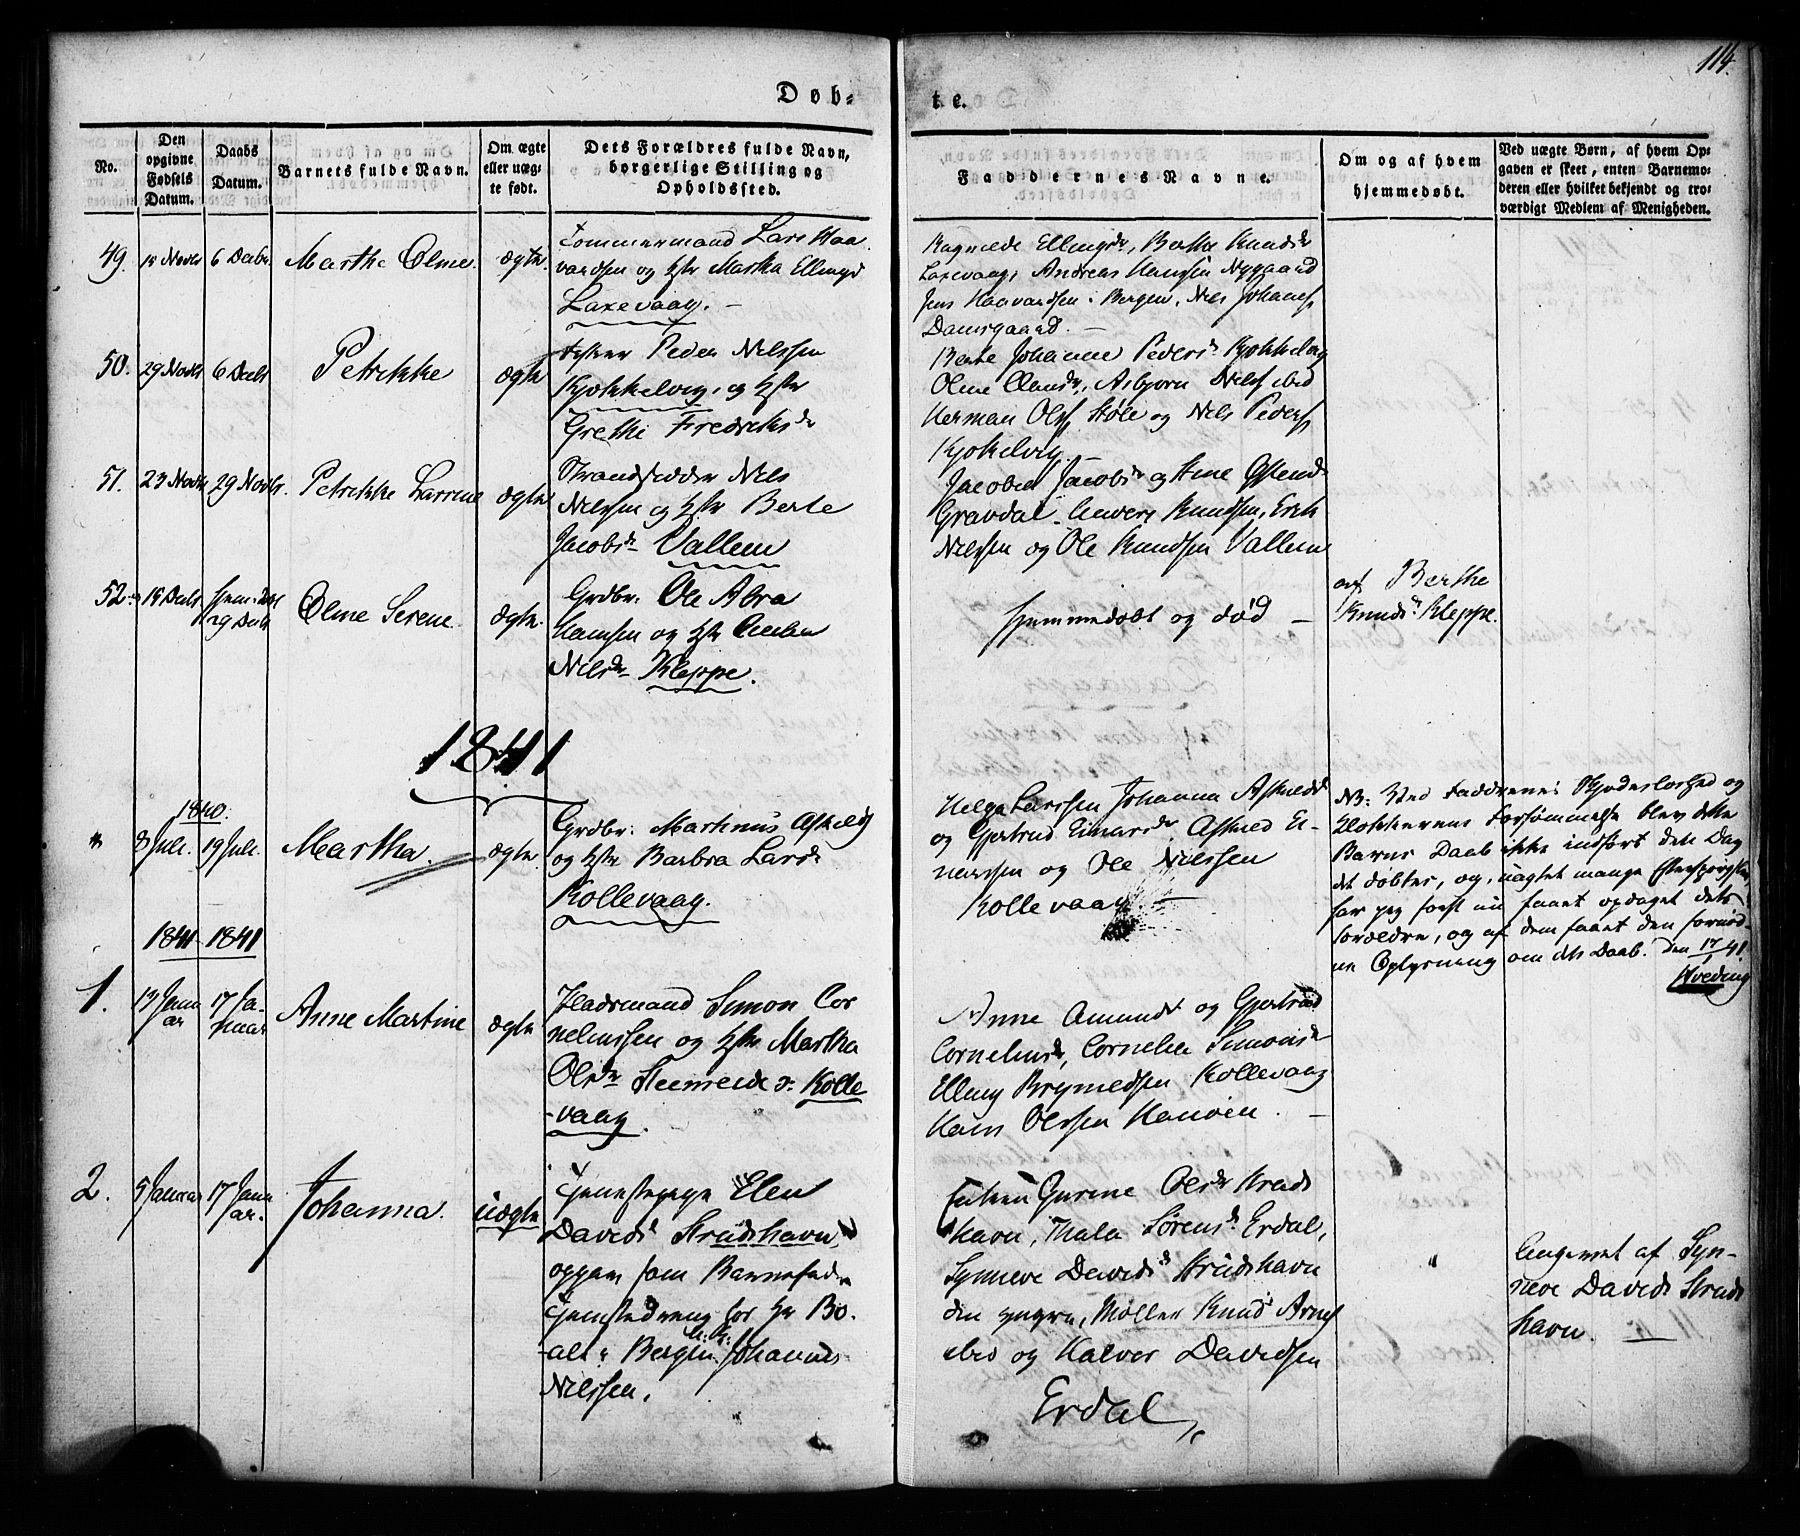 114.
Døb-
te.
No.
Den opgivne Fødsels Datum.
Daabs Datum.
Barnets fulde Navn.
Om ægte eller uægte født.
Dets Forældres fulde Navn, borgerlige Stilling og Opholdssted.
Faddernes Navne.
Om og af hvem hjemmedøbt.
Ved uægte Børn, af hvem Opgaven er skeet, enten Barnemoderen eller hvilket bekjendt og troværdigt Medlem af Menigheden.
49. 6 Decbr. Marthe Olme. ægte.
Tømmermand Lars Haa-
vardsen og Hstr Martha Ellingsd
Laxevaag. –
Ragnilde Ellingsdr, Berthe Knudsdr
Laxevaag, Andreas Hansen Nygaard
Jens Haavardsen i Bergen, Nels Johannes
Damsgaard. –
50. 29 Novbr 6 Decbr Petrikke ægte
Peder Nelssen
Kjøkkelvig, og Hstr
Grethe Fredriksdr
Berte Johanne Pedersdr Kjøkkelvig
Olme Olansdr, Asbjørn Nelss ibid
Herman Olss Støle og Nels Pederss
Kjøkelvig.
51. 23 Novbr 29 Novbr. Petrikke Larrine ægte
Strandsidder Nels
Nelssen og Hstr Berte
Jacobsdr Vallem
Jacobsdr og Ane
Gravdal. Knudsen, Erik
Nelssen og Ole Knudsen Vallem
52. 18 Decbr 29 Decbr Olme Serene ægte.
Grdbr. Ole Abra
hamsen og Hstr
Nelsdr Kleppe.
hjemmedøbt og død –
af Berthe
Knudsdr Kleppe.
1841
1840.
" 8 Juli. 19 Juli. Martha. ægte
Grdbr. Martinus Askelds
og Hstr Barbra Larsdr
Kollevaag.
Helge Larssen Johanna Askeldsd
og Gjertrud Einarsdr Askeld Ei-
narssen og Ole Nilssen
Kollevaag –
NB: Ved Faddernes Skjødesløshed og
Klokkerens Forsømmelse blev dette
Barns Daab ikke indført den Dag
det døbtes, og, uagtet mange Efterspørgsler,
har jeg først nu faaet opdaget dets
Forældre, og af dem faaet den fornød-
ne Oplysning om dets Daab. Den 17/1 41.
Hveding
1841 1841
1. 13 Janu
ar 17 Ja-
nuar Anne Martine ægte
Huusmand Simon Cor
neliussen og Hstr Martha
Olsdr Kolle
-vaag.
Anne Amundsd og Gjertrud
Corneliusdr, Cornelia Simonsdr
Elling Brynildsen Kollevaag
Hans Olssen Hanøen. –
2. 5 Januar 17 Janu
ar. Johanna. uægte
Tjenestepige Elen
Davidsd Strudshavn,
opgav som Barnefader
Tjenestedreng for Hr Bo-
alt i Bergen, Johannes
Nilssen.
Enken Gurine Olsdr Struds
havn, Thala Sørensdr Erdal,
Synneve Davidsdr Strudshavn
den yngre, Møller Knud Arness
ibid og Halver Davidsen
Erdal
"
Angivet af Syn-
neve Davidsd Struds
havn. –